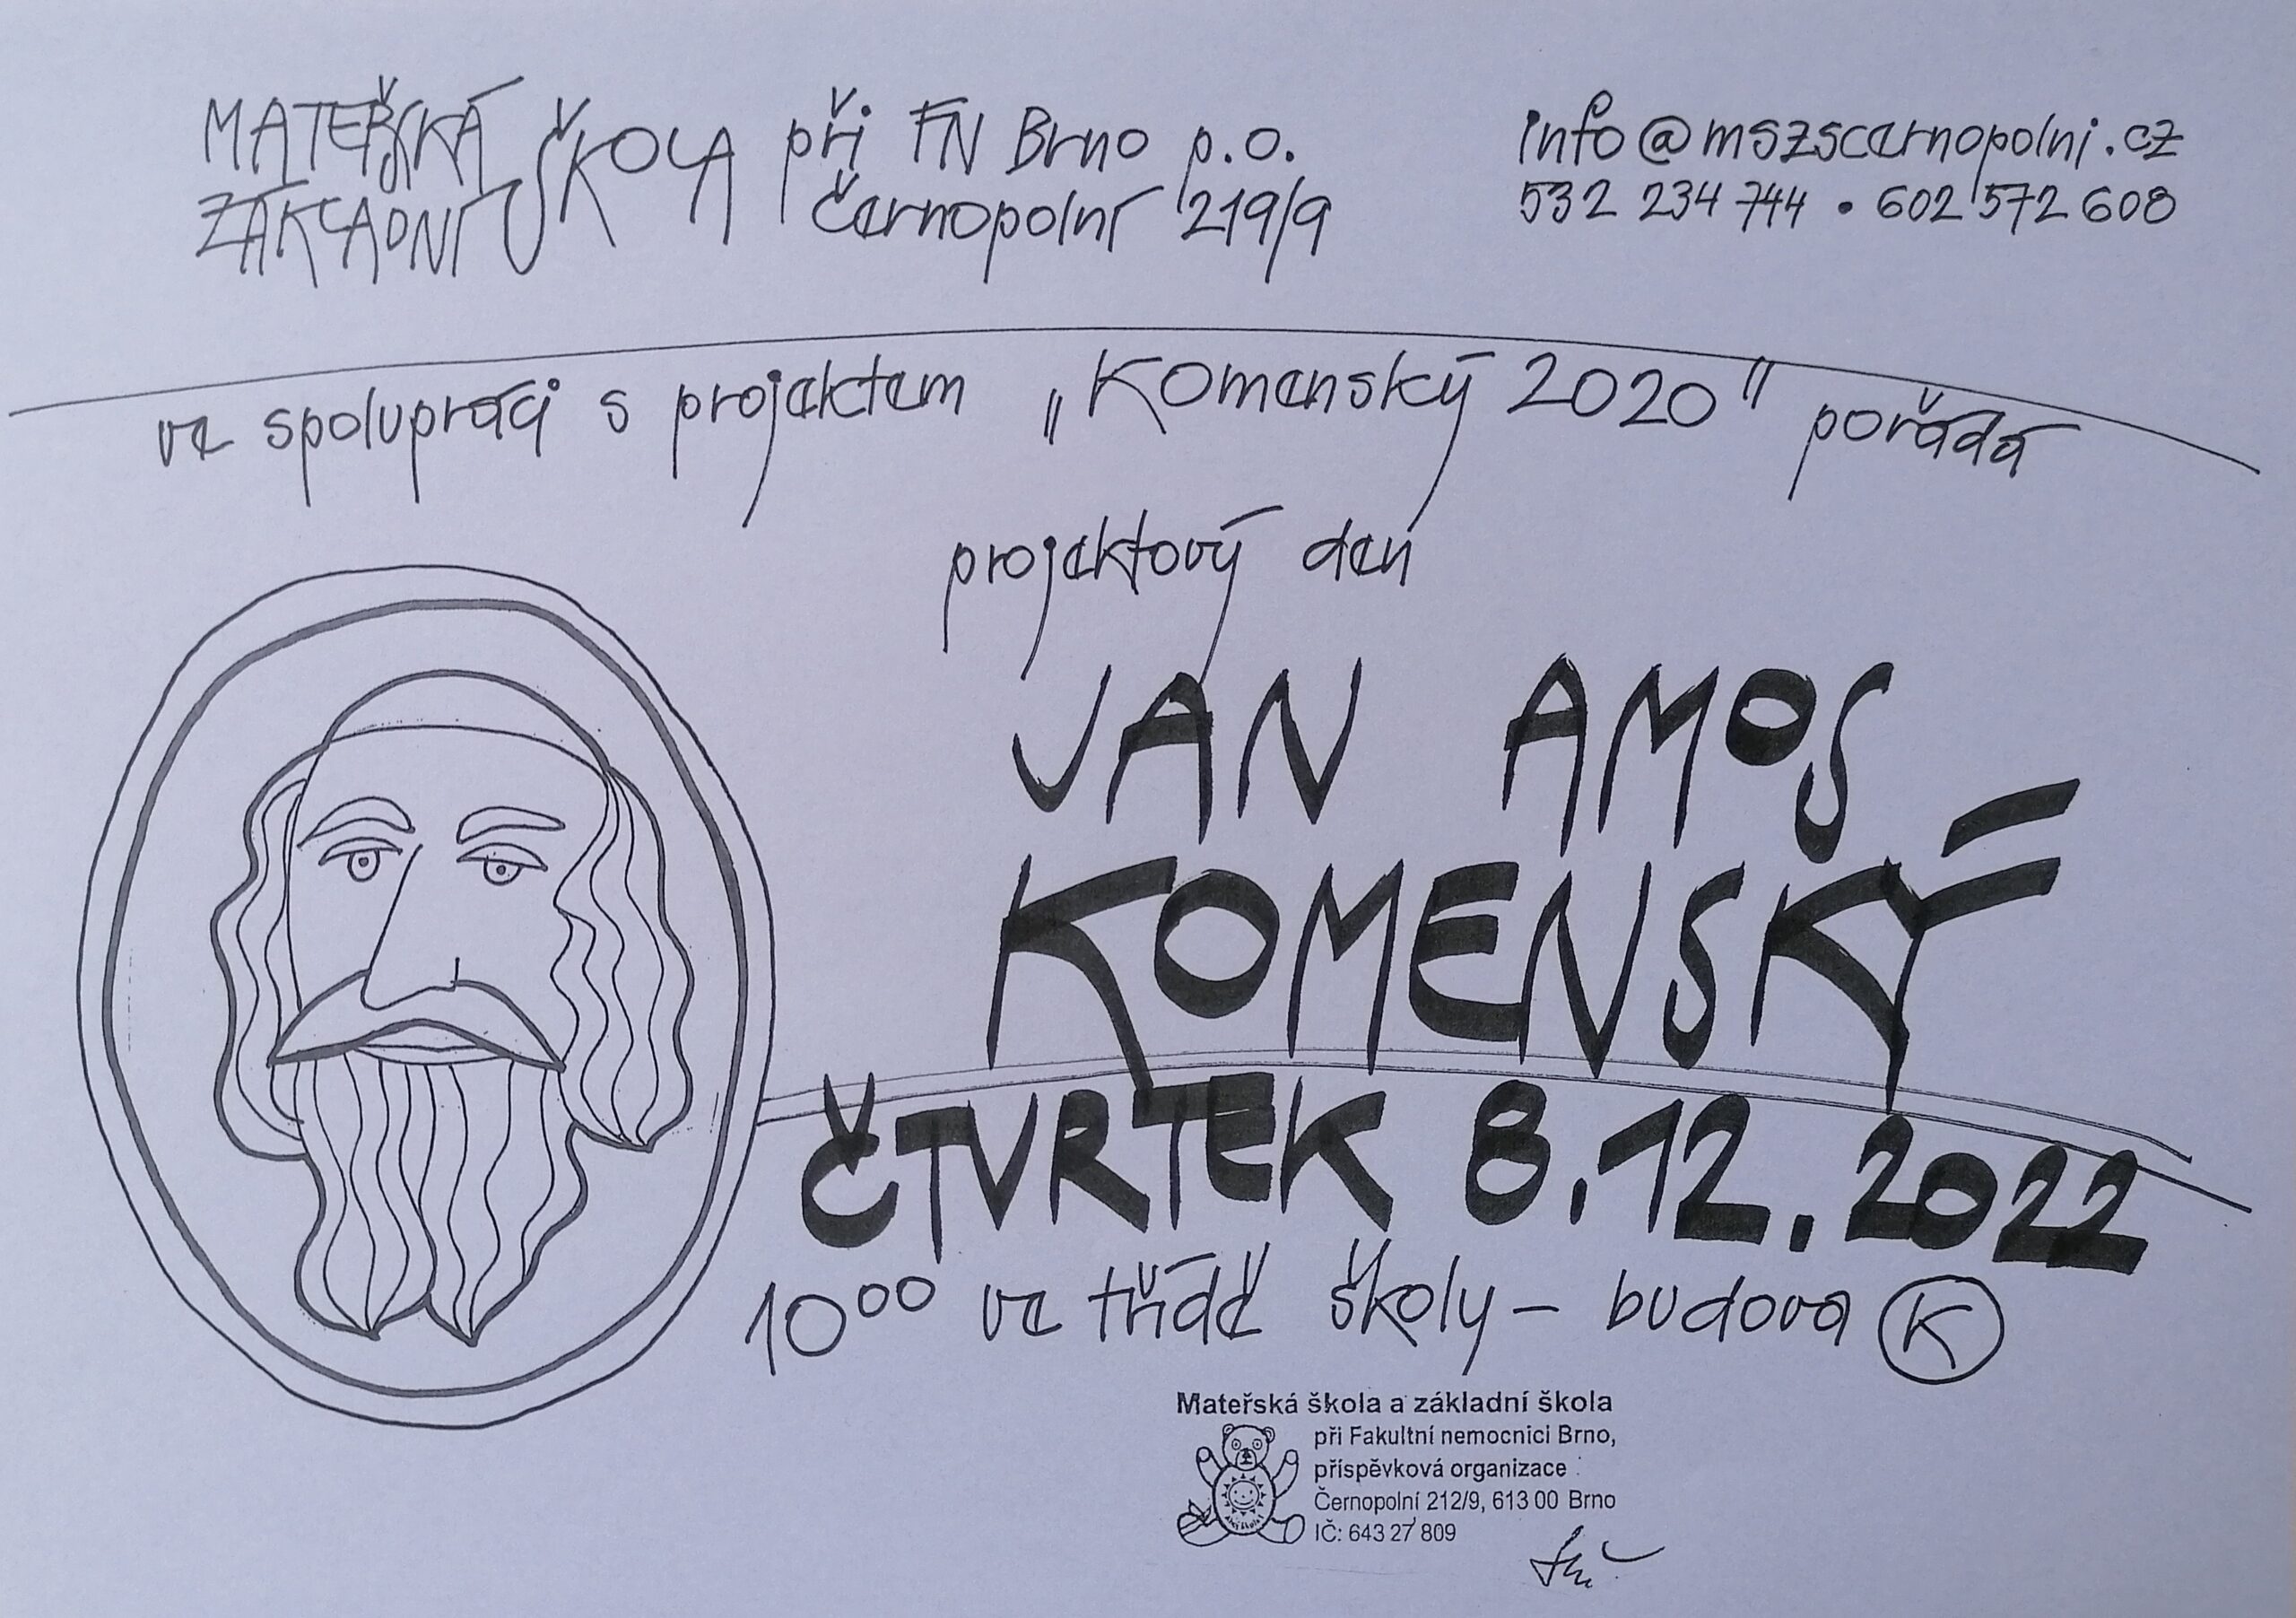 MATEŘSKÁ ZÁKLADNÍ ŠKOLA při FN Brno p.o.
Černopolní 219/9
info@mszscernopolni.cz
532 234 744 • 602 572 608
ve spolupráci s projektem „Komenský 2020" pořádá
projektový den
JAN AMOS
KOMENSKÝ
ČTVRTEK 8.12.2022
10⁰⁰ ve třídě školy – budova K
Mateřská škola a základní škola
při Fakultní nemocnici Brno,
příspěvková organizace
Černopolní 212/9, 613 00 Brno
IČ: 643 27 809